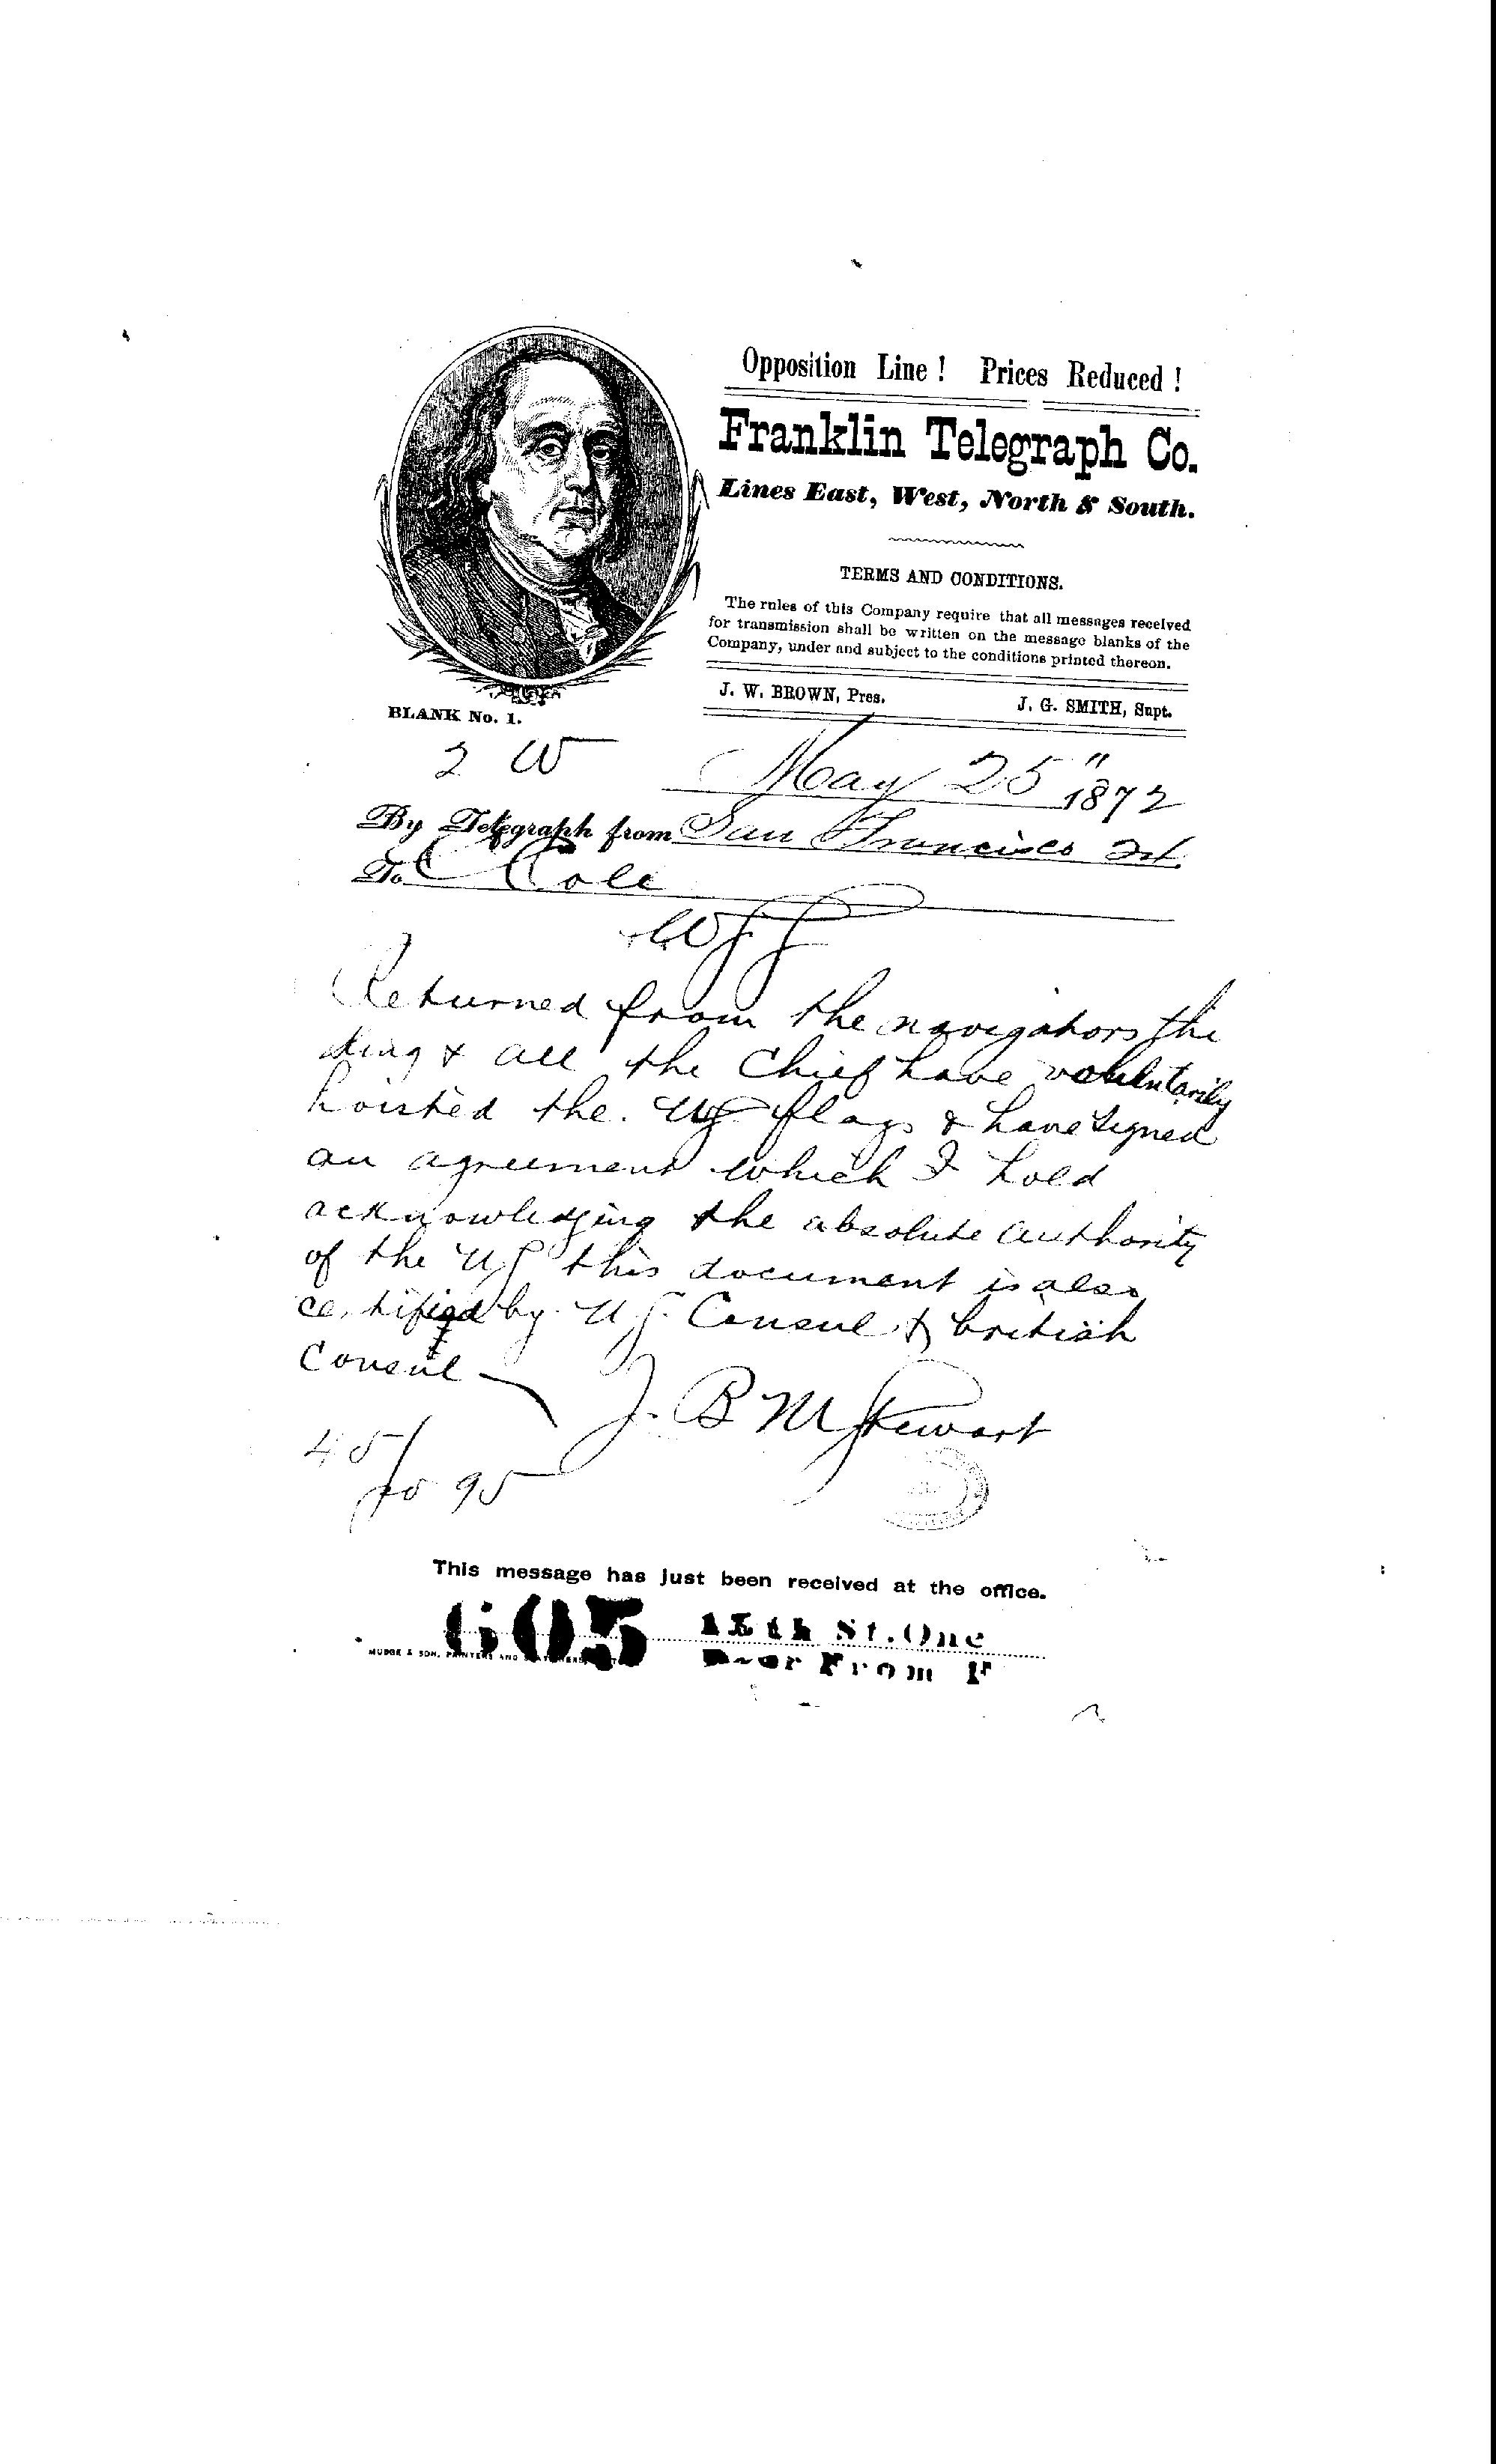 Opposition Line! Prices Reduced!
Franklin Telegraph Co.
Lines East, West, North & South.
TERMS AND CONDITIONS.
The rules of this Company require that all messages received
for transmission shall be written on the message blanks of the
Company, under and subject to the conditions printed thereon.
J. W. BROWN, Pres. J. G. SMITH, Supt.
BLANK No. 1.
2 W
May 25" 1872
By Telegraph from San Francisco
To C Cole
Returned from the navigators the
King & all the Chief have voluntarily
hoisted the. US flags & have signed
an agreement which I hold
acknowledging the absolute authority
of the US this document is also
certified by US. Consul & british
Consul
J. B M Stewart
45/ 95
This message has just been received at the office.
605 15th St. One
Door From F
MUDGE & SON, PRINTERS AND